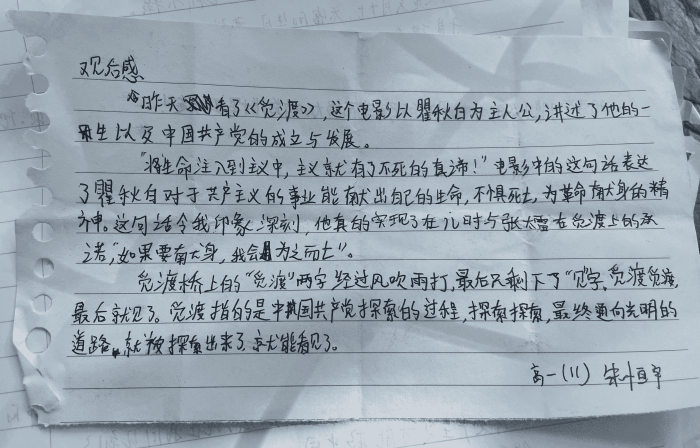 观后感
昨天看了《觉渡》，这个电影以瞿秋白为主人公，讲述了他的一
生以及中国共产党的成立与发展。
"将生命注入到主义中，主义就有了不死的真谛！"电影中的这句话表达
了瞿秋白对于共产主义的事业能献出自己的生命，不惧死亡，为革命献身的精
神。这句话令我印象深刻，他真的实现了在儿时与张太雷在觉渡上的承
诺，"如果要献身，我会为之而亡"。
觉渡桥上的"觉渡"两字经过风吹雨打，最后只剩下了"见"字，觉渡觉渡，
最后就见了。觉渡指的是中国共产党探索的过程，探索探索，最终通向光明的
道路，就被探索出来了，就能看见了。
高一(11)